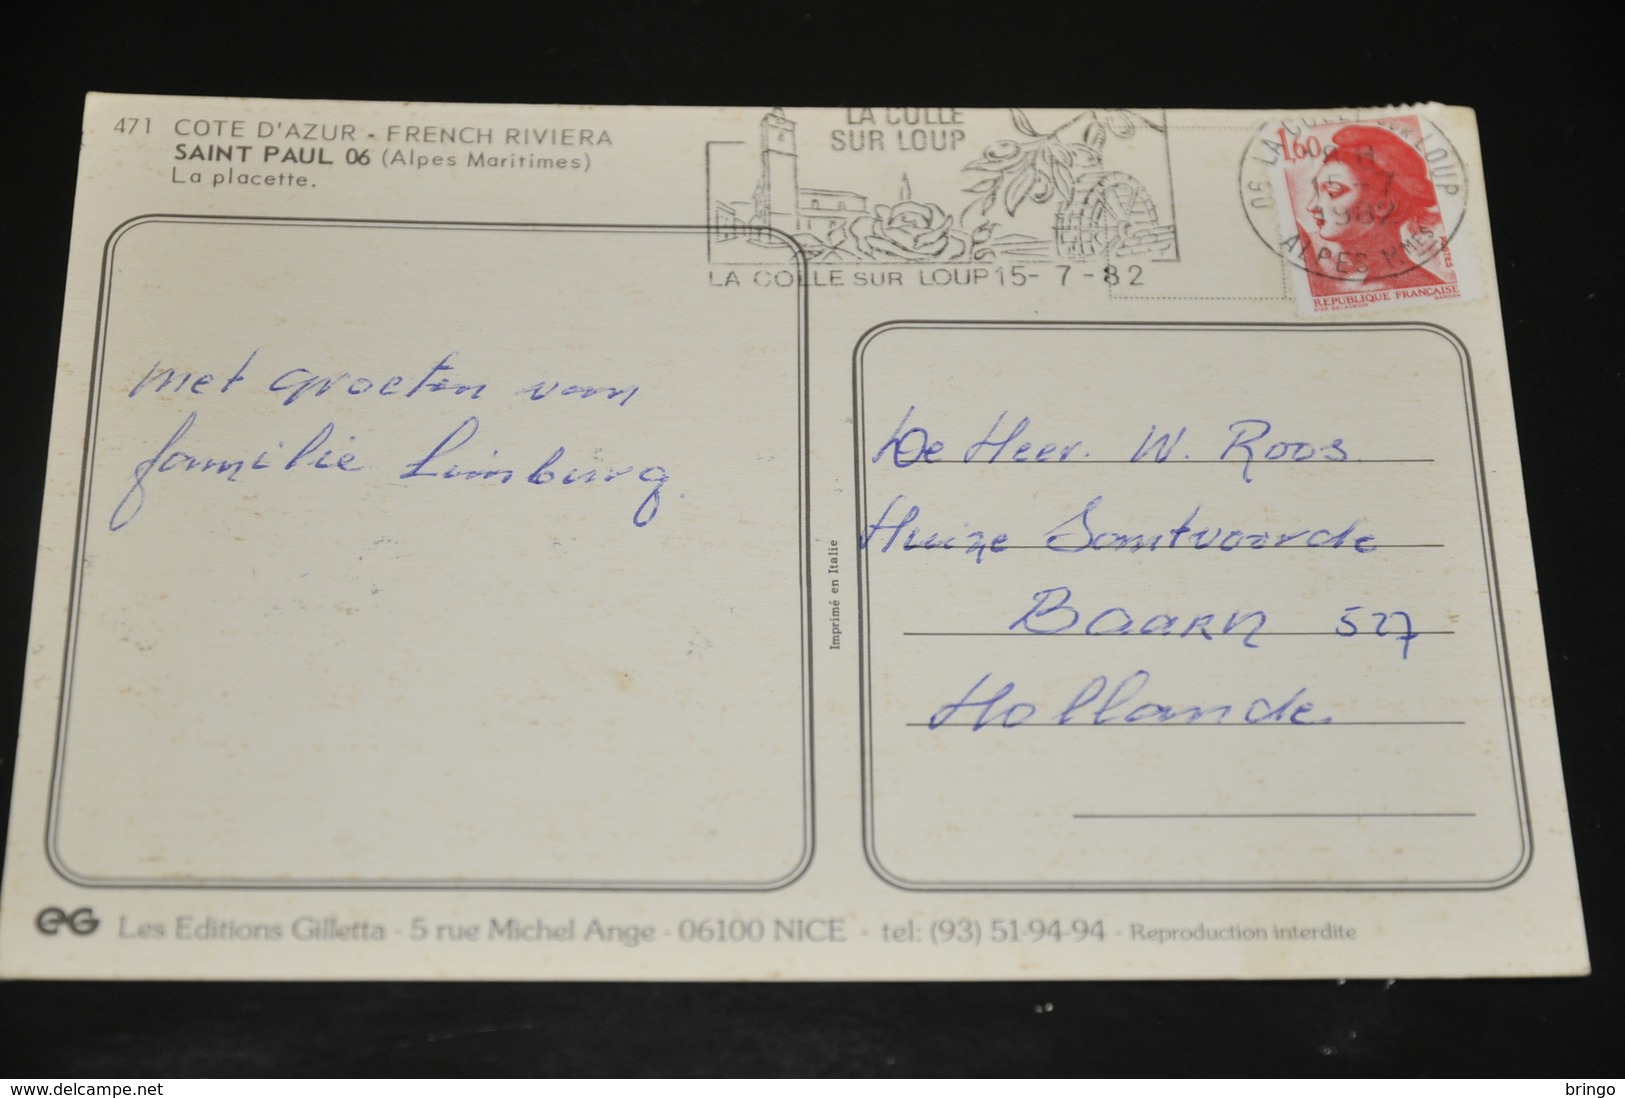 471 COTE D'AZUR - FRENCH RIVIERA
SAINT PAUL 06 (Alpes Maritimes)
La placette.
LA COLLE
SUR LOUP
LA COLLE SUR LOUP 15- 7 - 82
06 LA COLLE SUR LOUP
15 - 7
1982
ALPES MMES
1,60
POSTES
REPUBLIQUE FRANÇAISE
met groeten van
familie Limburg.
De Heer. W. Roos
Huize Santvoorde
BAARN 527
Hollande.
Imprimé en Italie
eG Les Editions Gilletta - 5 rue Michel Ange - 06100 NICE - tel: (93) 51-94-94 - Reproduction interdite
www.delcampe.net
bringo